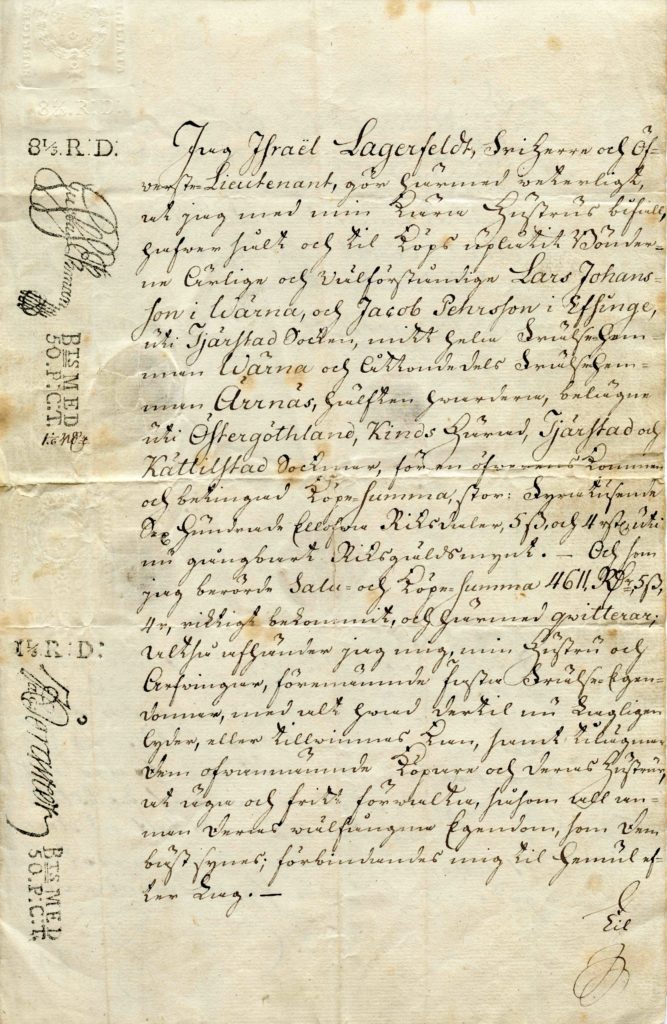 8⅓. R:D:
BTS MED
50. P:C:T.
1⅓ R:D:
BTS MED
50. P:C:T.
Jag Israël Lagerfeldt, Friherre och Öf-
verste-Lieutenant, gör härmed veterligt,
at jag med min Kära Hustrus bifall,
hafver sålt och til Köps uplåtit Bönder-
ne Ärlige och Välförståndige Lars Johans-
son i Wärna, och Jacob Pehrsson i Essinge,
uti Tjärstad Socken, mitt hela Frälsehem-
man Wärna och Åttondedels Frälsehem-
man Ärrnäs, hälften hvardera, belägne
uti Östergöthland, Kinds Härad, Tjärstad och
Kättilstad Socknar, för en öfverens Kommen
och betingad Köpe-summa, stor: Fyratusende
Sex Hundrade Ellofva Riksdaler, 5 ß, och 4 rst, uti
nu gångbart Riksgäldsmynt. — Och som
jag berörde Salu- och Köpe-summa 4611. Rdr, 5 ß,
4 r, riktigt bekommit, och härmed qvitterar;
Altså afhänder jag mig, min Hustru och
Arfvingar, förenämnde Fasta Frälse-Egen-
domar, med alt hvad dertil nu Lagligen
lyder, eller tillvinnas Kan, samt tilägnar
dem ofvannämnde Köpare och deras Hustrur,
at äga och fritt förvalta, såsom all an-
nan deras välfångna Egendom, som dem
bäst synes; förbindandes mig til Hemul ef-
ter Lag. —
Til